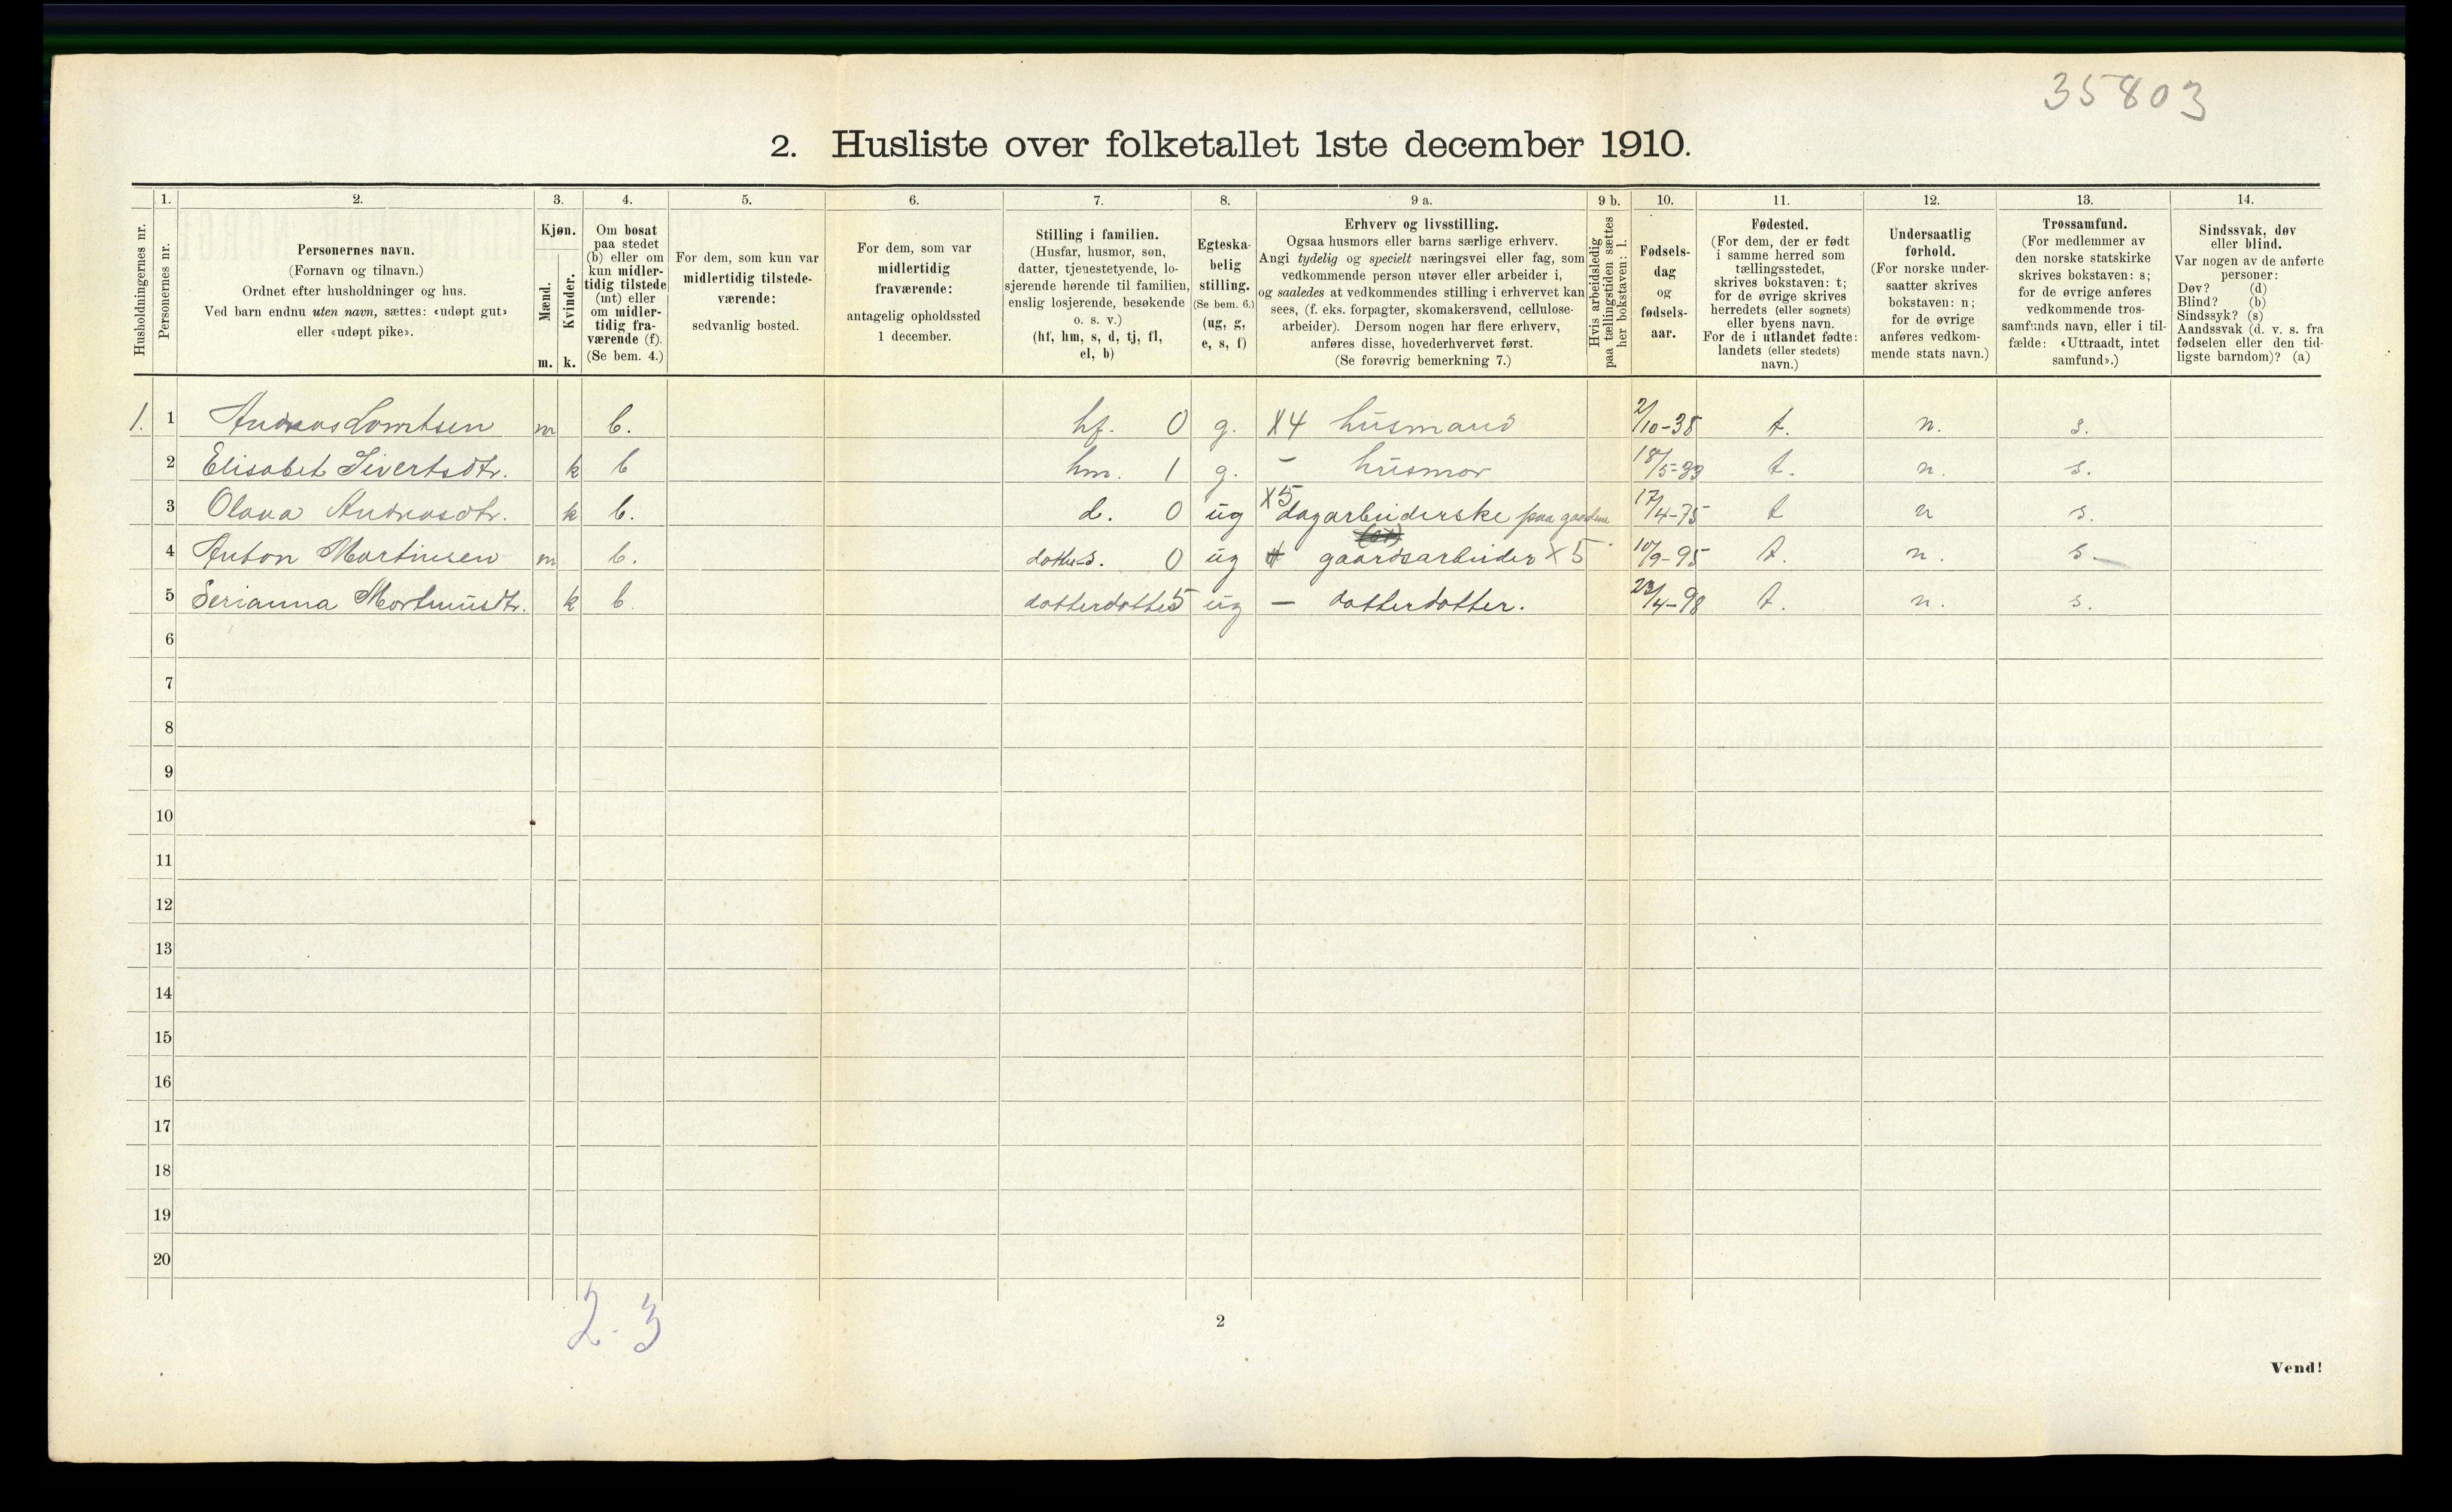 35803
2. Husliste over folketallet 1ste december 1910.
Husholdningernes nr.
1.
Personernes nr.
2.
Personernes navn.
(Fornavn og tilnavn.)
Ordnet efter husholdninger og hus.
Ved barn endnu uten navn, sættes: «udøpt gut»
eller «udøpt pike».
3.
Kjøn.
Mænd.
m.
Kvinder.
k.
4.
Om bosat
paa stedet
(b) eller om
kun midler-
tidig tilstede
(mt) eller
om midler-
tidig fra-
værende (f).
(Se bem. 4.)
5.
For dem, som kun var
midlertidig tilstede-
værende:
sedvanlig bosted.
6.
For dem, som var
midlertidig
fraværende:
antagelig opholdssted
1 december.
7.
Stilling i familien.
(Husfar, husmor, søn,
datter, tjenestetyende, lo-
sjerende hørende til familien,
enslig losjerende, besøkende
o. s. v.)
(hf, hm, s, d, tj, fl,
el, b)
8.
Egteska-
belig
stilling.
(Se bem. 6.)
(ug, g,
e, s, f)
9 a.
Erhverv og livsstilling.
Ogsaa husmors eller barns særlige erhverv.
Angi tydelig og specielt næringsvei eller fag, som
vedkommende person utøver eller arbeider i,
og saaledes at vedkommendes stilling i erhvervet kan
sees, (f. eks. forpagter, skomakersvend, cellulose-
arbeider). Dersom nogen har flere erhverv,
anføres disse, hovederhvervet først.
(Se forøvrig bemerkning 7.)
9 b.
Hvis arbeidsledig
paa tællingstiden sættes
her bokstaven: l.
10.
Fødsels-
dag
og
fødsels-
aar.
11.
Fødested.
(For dem, der er født
i samme herred som
tællingsstedet,
skrives bokstaven: t;
for de øvrige skrives
herredets (eller sognets)
eller byens navn.
For de i utlandet fødte:
landets (eller stedets)
navn.)
12.
Undersaatlig
forhold.
(For norske under-
saatter skrives
bokstaven: n;
for de øvrige
anføres vedkom-
mende stats navn.)
13.
Trossamfund.
(For medlemmer av
den norske statskirke
skrives bokstaven: s;
for de øvrige anføres
vedkommende tros-
samfunds navn, eller i til-
fælde: «Uttraadt, intet
samfund».)
14.
Sindssvak, døv
eller blind.
Var nogen av de anførte
personer:
Døv? (d)
Blind? (b)
Sindssyk? (s)
Aandssvak (d. v. s. fra
fødselen eller den tid-
ligste barndom)? (a)
1. 1 m b. hf. 0 g. X4 husmand 2/10-38 t. n. s.
2 Elisabet Sivertsdtr. k b hm. 1 g. - husmor 18/5-33 t. n. s.
3 Olava Andreasdtr. k b. d. 0 ug X5 dagarbeiderske paa gaardene 17/4-75 t n s.
4 Anton Martinsen m b. datters. 0 ug gaardsarbeider X5 10/9-95 t. n. s.
5 Serianna Martinusdtr. k b. datterdatter 5 ug - datterdatter. 23/4-98 t. n. s.
6
7
8
9
10
11
12
13
14
15
16
17
18
19
20
2-3
2
Vend!